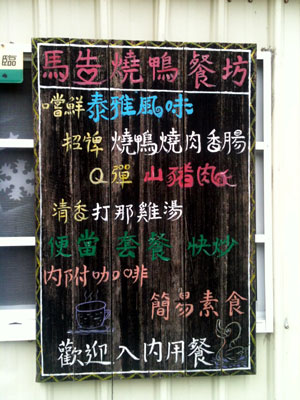 馬告燒鴨餐坊
嚐鮮泰雅風味
招牌燒鴨燒肉香腸
Q彈山豬肉
清香打那雞湯
便當 套餐 快炒
內附咖啡
簡易素食
歡迎入內用餐
臨